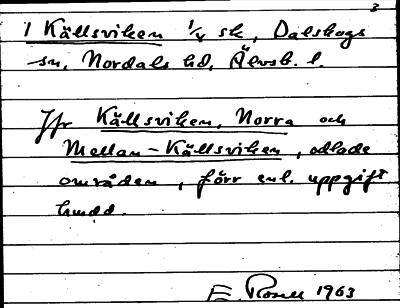 3
1 Källsviken 1/4 sk, Dalskogs
sn, Nordals hd, Älvsb. l.
Jfr Källsviken, Norra och
Mellan-Källsviken, odlade
områden, förr enl. uppgift
E. Rosell 1963